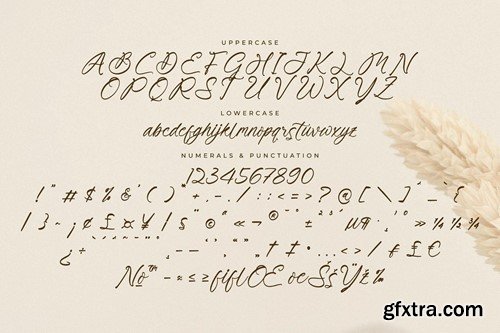 UPPERCASE
ABCDEFGHIJKLMN
OPQRSTUVWXYZ
LOWERCASE
abcdefghijklmnopqrstuvwxyz
NUMERALS & PUNCTUATION
1234567890
! " # $ % & ' ( ) * + , - . / : ; < = > ? @ [ \ ] _ ` {
| } ~ ¡ ¢ £ ¤ ¥ ¦ § ¨ © « ¬ ® ± » ¼ ½ ¾
¿
† ‡ • … < > / ƒ £ €
№ ™ − ≈ ≤ ≥ fi fl Œ œ Š š Ÿ ž ‰
gfxtra.com